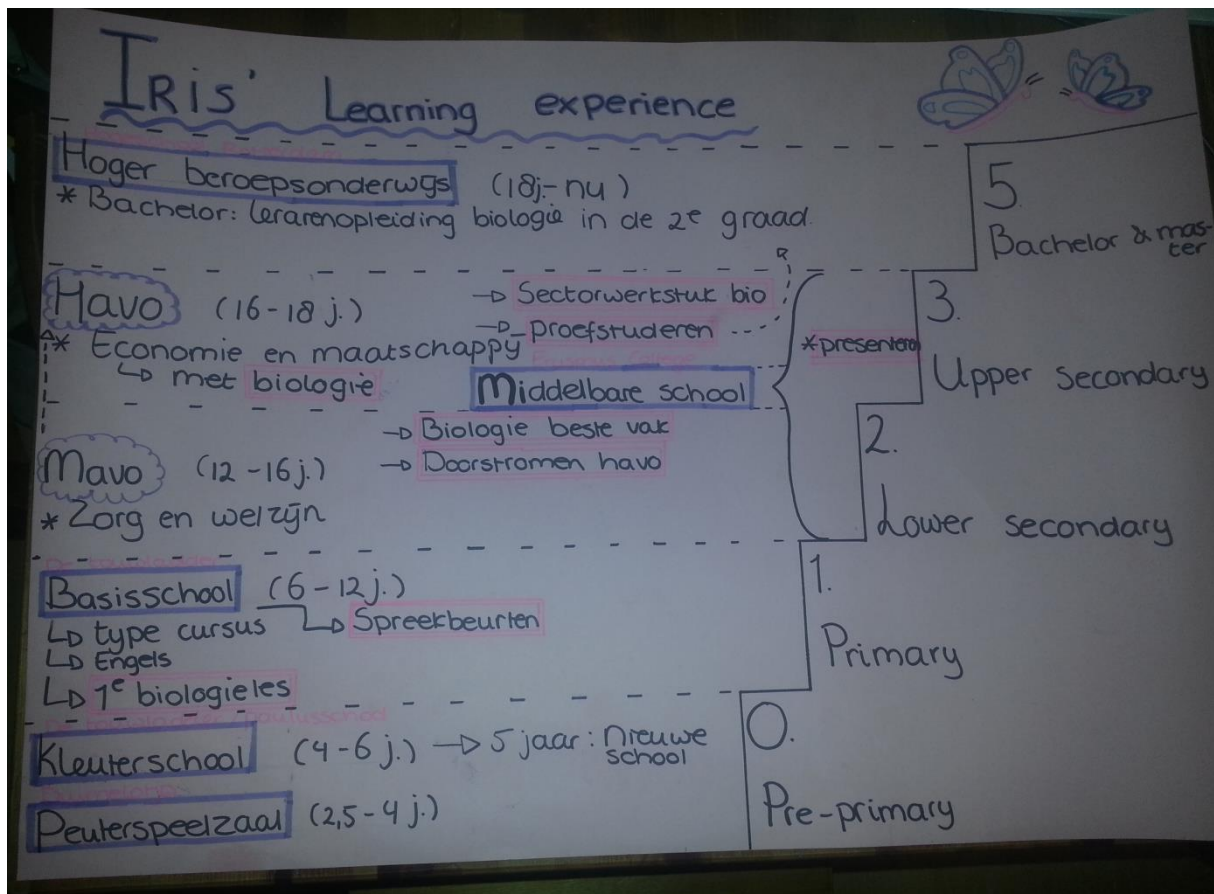 IRis' Learning experience
Hoger beroepsonderwijs (18j.- nu)
* Bachelor: lerarenopleiding biologie in de 2e graad.
5.
Bachelor & mas-
ter
Havo (16-18 j.)
* Economie en maatschappij
↳ met biologie
→ Sectorwerkstuk bio
→ proefstuderen
Middelbare school
* presenteren
3.
Upper secondary
→ Biologie beste vak
→ Doorstromen havo
Mavo (12-16j.)
* Zorg en welzijn
2.
Lower secondary
Basisschool (6-12j.)
↳ type cursus ↳ Spreekbeurten
↳ Engels
↳ 1e biologieles
1.
Primary
Kleuterschool (4-6 j.) → 5 jaar: nieuwe
school
Peuterspeelzaal (2,5-4 j.)
0.
Pre-primary